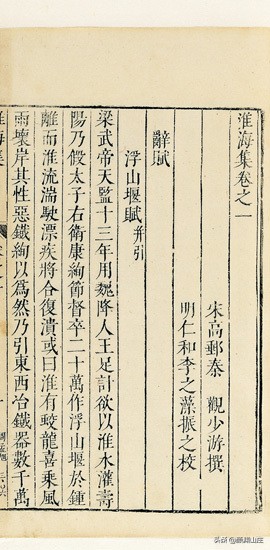 淮海集卷之一
宋高郵秦 觀少游撰
明仁和李之藻振之校
辭賦
浮山堰賦 并引
梁武帝天監十三年用魏降人王足計欲以淮水灌壽
陽乃假太子右衛康絢節督卒二十萬作浮山堰於鍾
離而淮流湍駛漂疾將合復潰或曰淮有蛟龍喜乘風
雨壞岸其性惡鐵絢以為然乃引東西冶鐵器數千萬
淮海集
头条